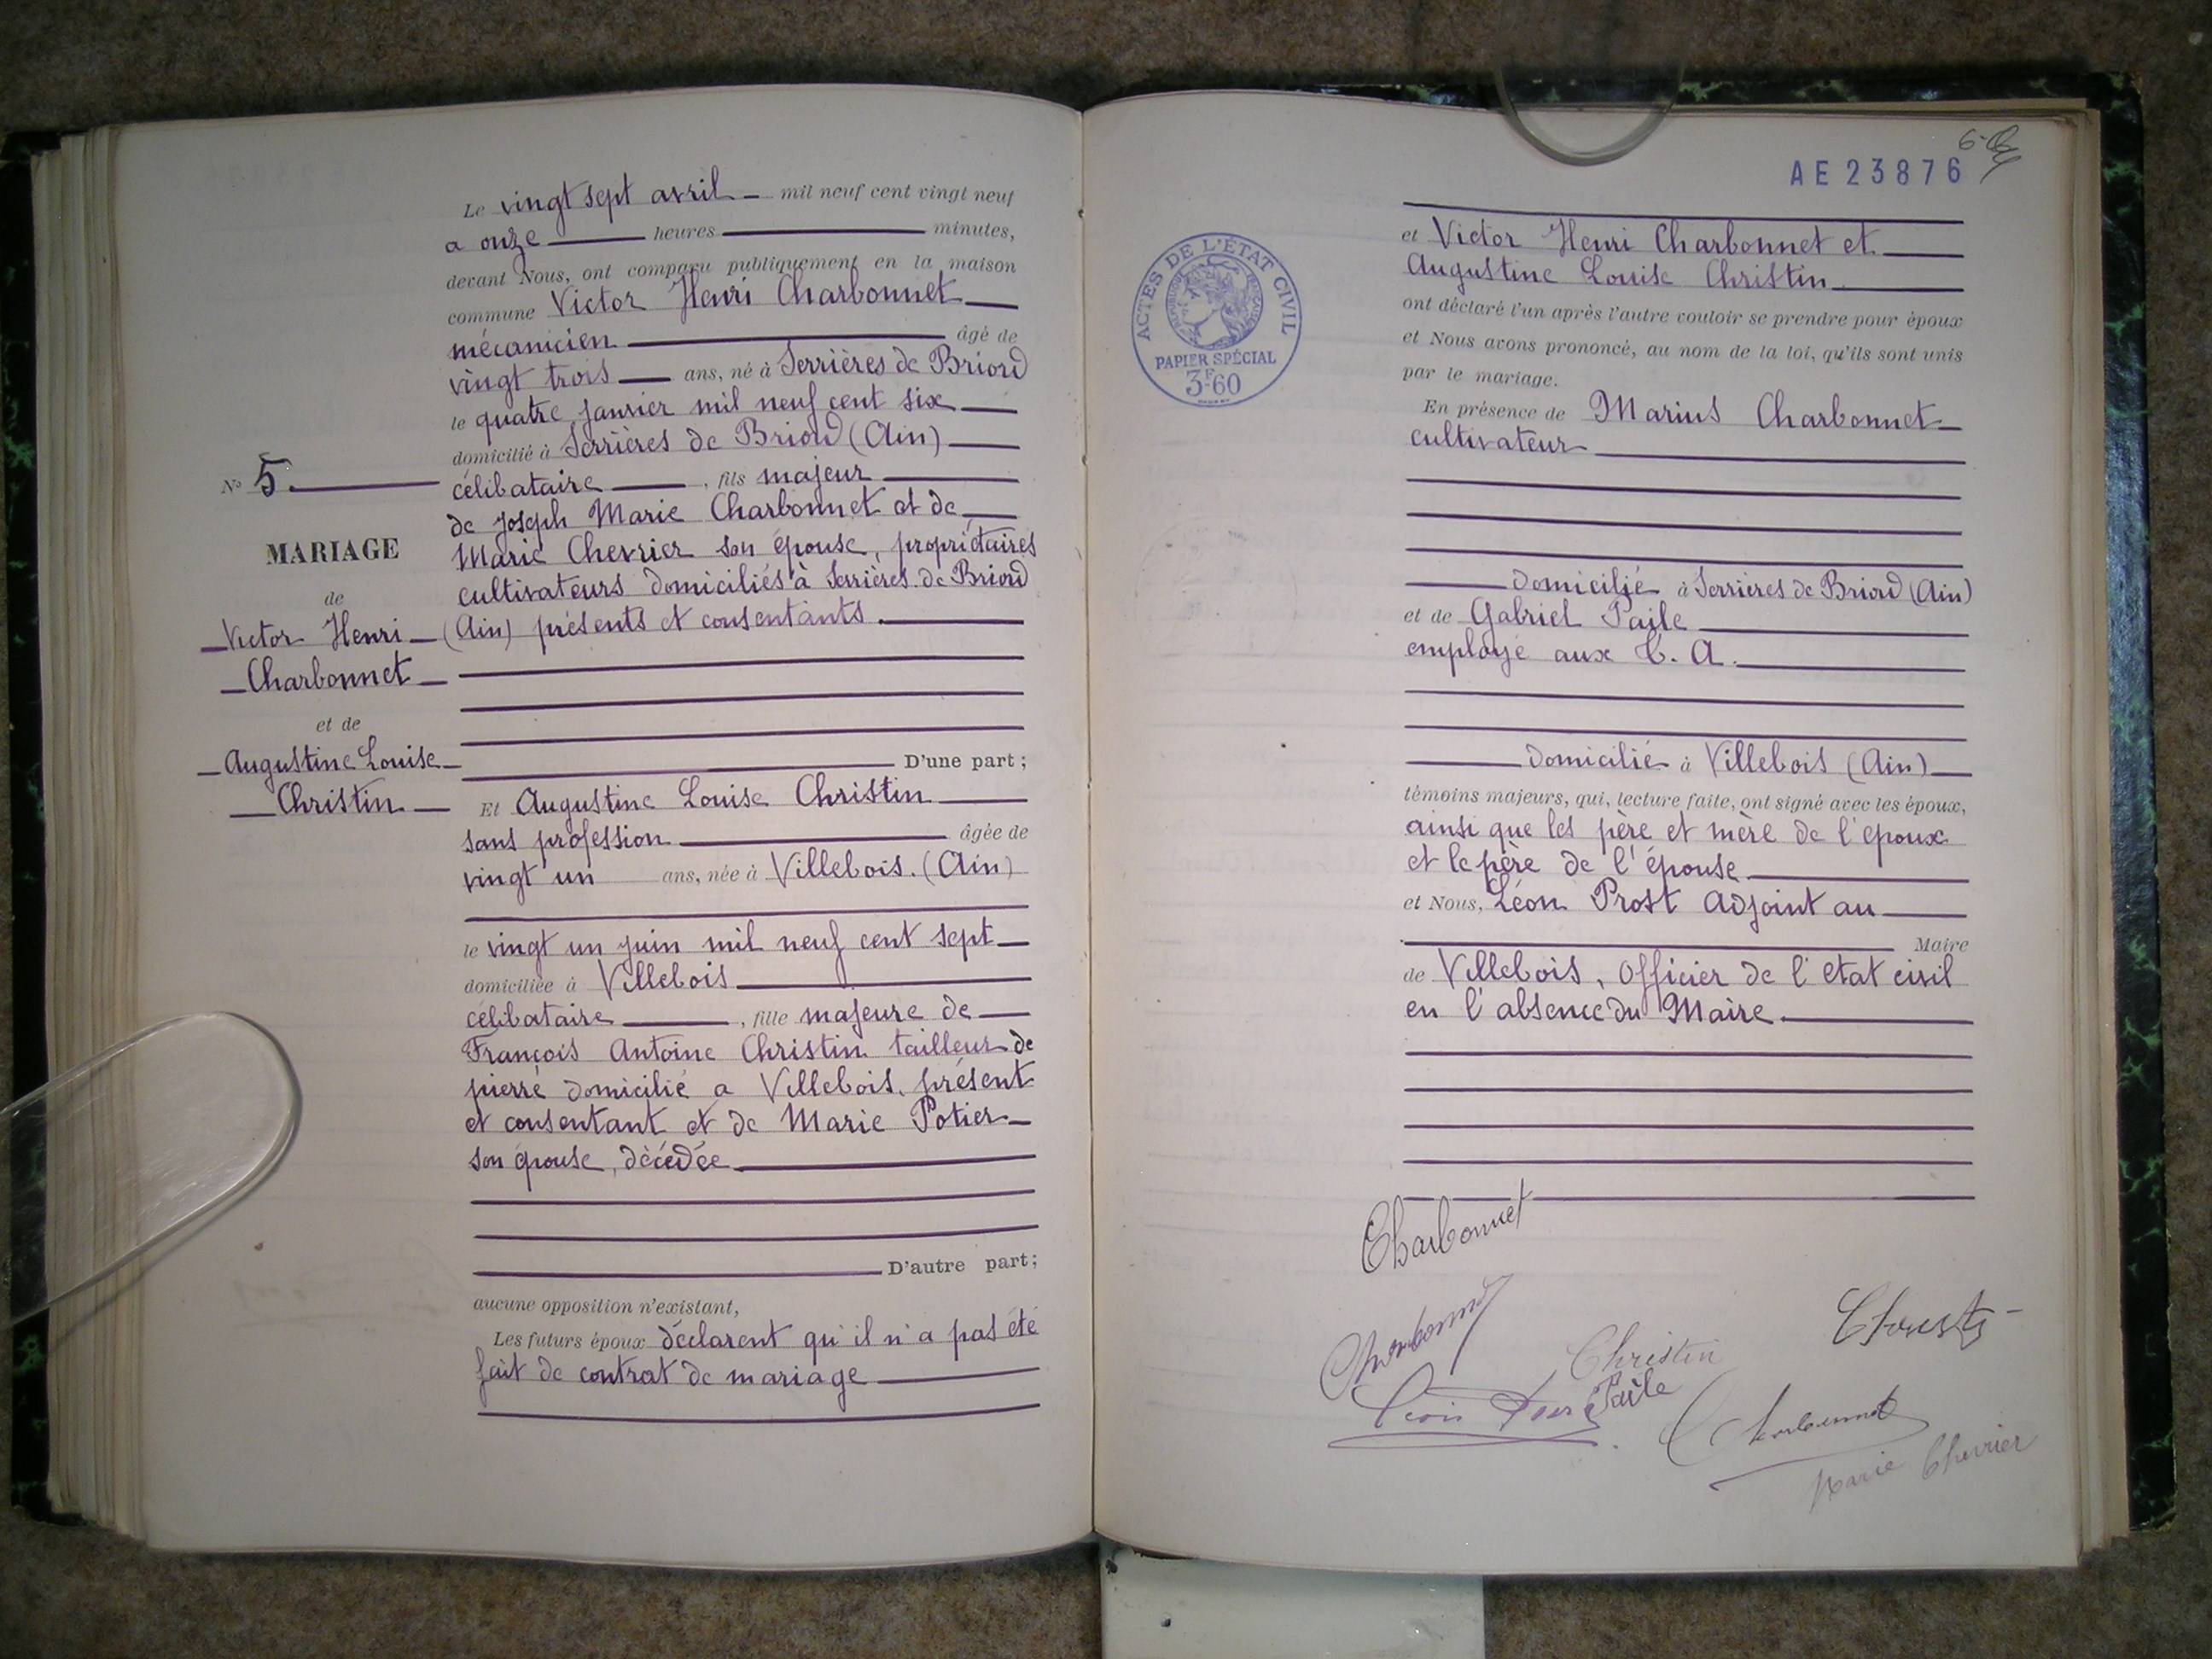 Le vingt sept avril mil neuf cent vingt neuf
a onze heures minutes,
devant Nous, ont comparu publiquement en la maison
commune Victor Henri Charbonnet
mécanicien âgé de
vingt trois ans, né à Serrières de Briord
le quatre janvier mil neuf cent six
domicilié à Serrières de Briord (Ain)
célibataire, fils majeur
de Joseph Marie Charbonnet et de
Marie Chevrier son épouse, propriétaires
cultivateurs domiciliés à Serrières de Briord
(Ain) présents et consentants.
No 5.
MARIAGE
de
Victor Henri
Charbonnet
et de
Augustine Louise
Christin
D'une part;
Et Augustine Louise Christin
sans profession âgée de
vingt un ans, née à Villebois. (Ain)
le vingt un juin mil neuf cent sept
domiciliée à Villebois
célibataire, fille majeure de
François Antoine Christin tailleur de
pierre domicilié a Villebois, présent
et consentant et de Marie Potier
son épouse, décédée
D'autre part;
aucune opposition n'existant,
Les futurs époux déclarent qu'il n'a pas été
fait de contrat de mariage
AE 23876
ACTES DE L'ÉTAT CIVIL
PAPIER SPÉCIAL
3F.60
et Victor Henri Charbonnet et
Augustine Louise Christin
ont déclaré l'un après l'autre vouloir se prendre pour époux
et Nous avons prononcé, au nom de la loi, qu'ils sont unis
par le mariage.
En présence de Marius Charbonnet
cultivateur
domicilié à Serrières de Briord (Ain)
et de Gabriel Paile
employé aux T. A.
domicilié à Villebois (Ain)
témoins majeurs, qui, lecture faite, ont signé avec les époux,
ainsi que les père et mère de l'epoux
et le père de l'épouse
et Nous, Léon Prost adjoint au
Maire
de Villebois, Officier de l'etat civil
en l'absence du Maire.
Charbonnet
Charbonnet
Christin
Paile
Charbonnet
Marie Chevrier